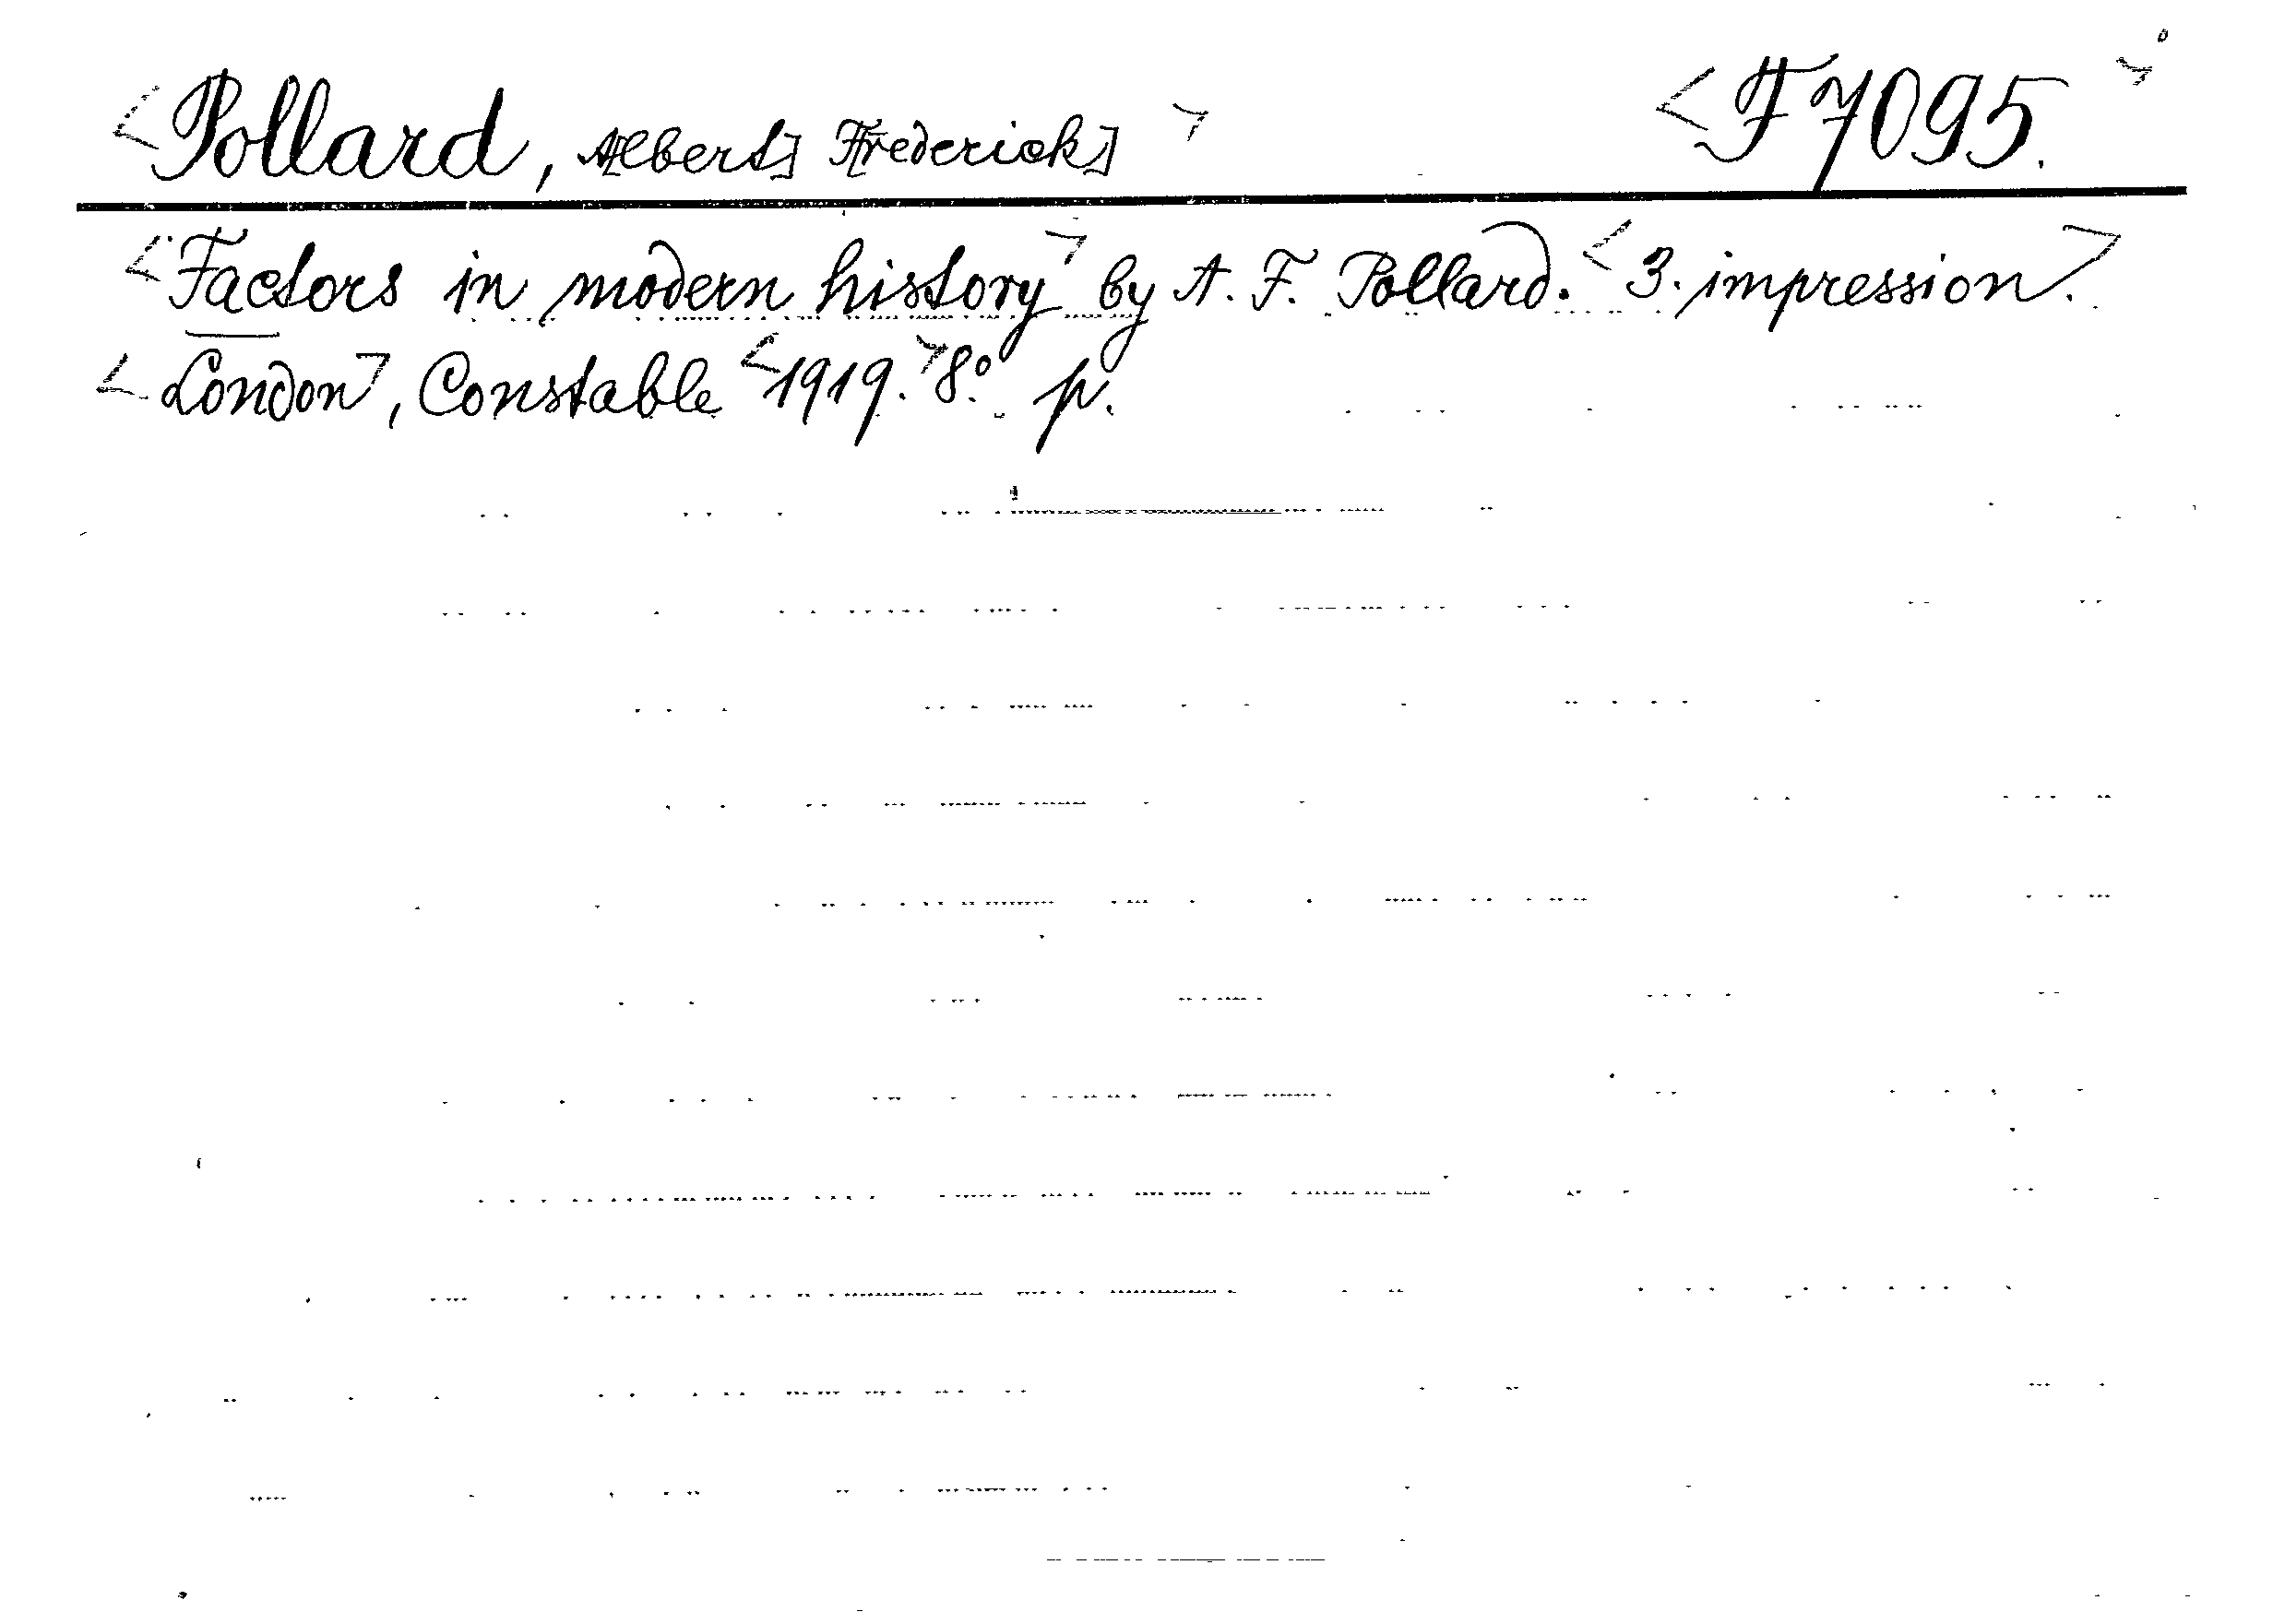 <Pollard, A[lbert] F[rederick]> <F7095.>
<Factors in modern history> by A. F. Pollard. <3. impression>.
<London>, Constable <1919.> 8°. p.